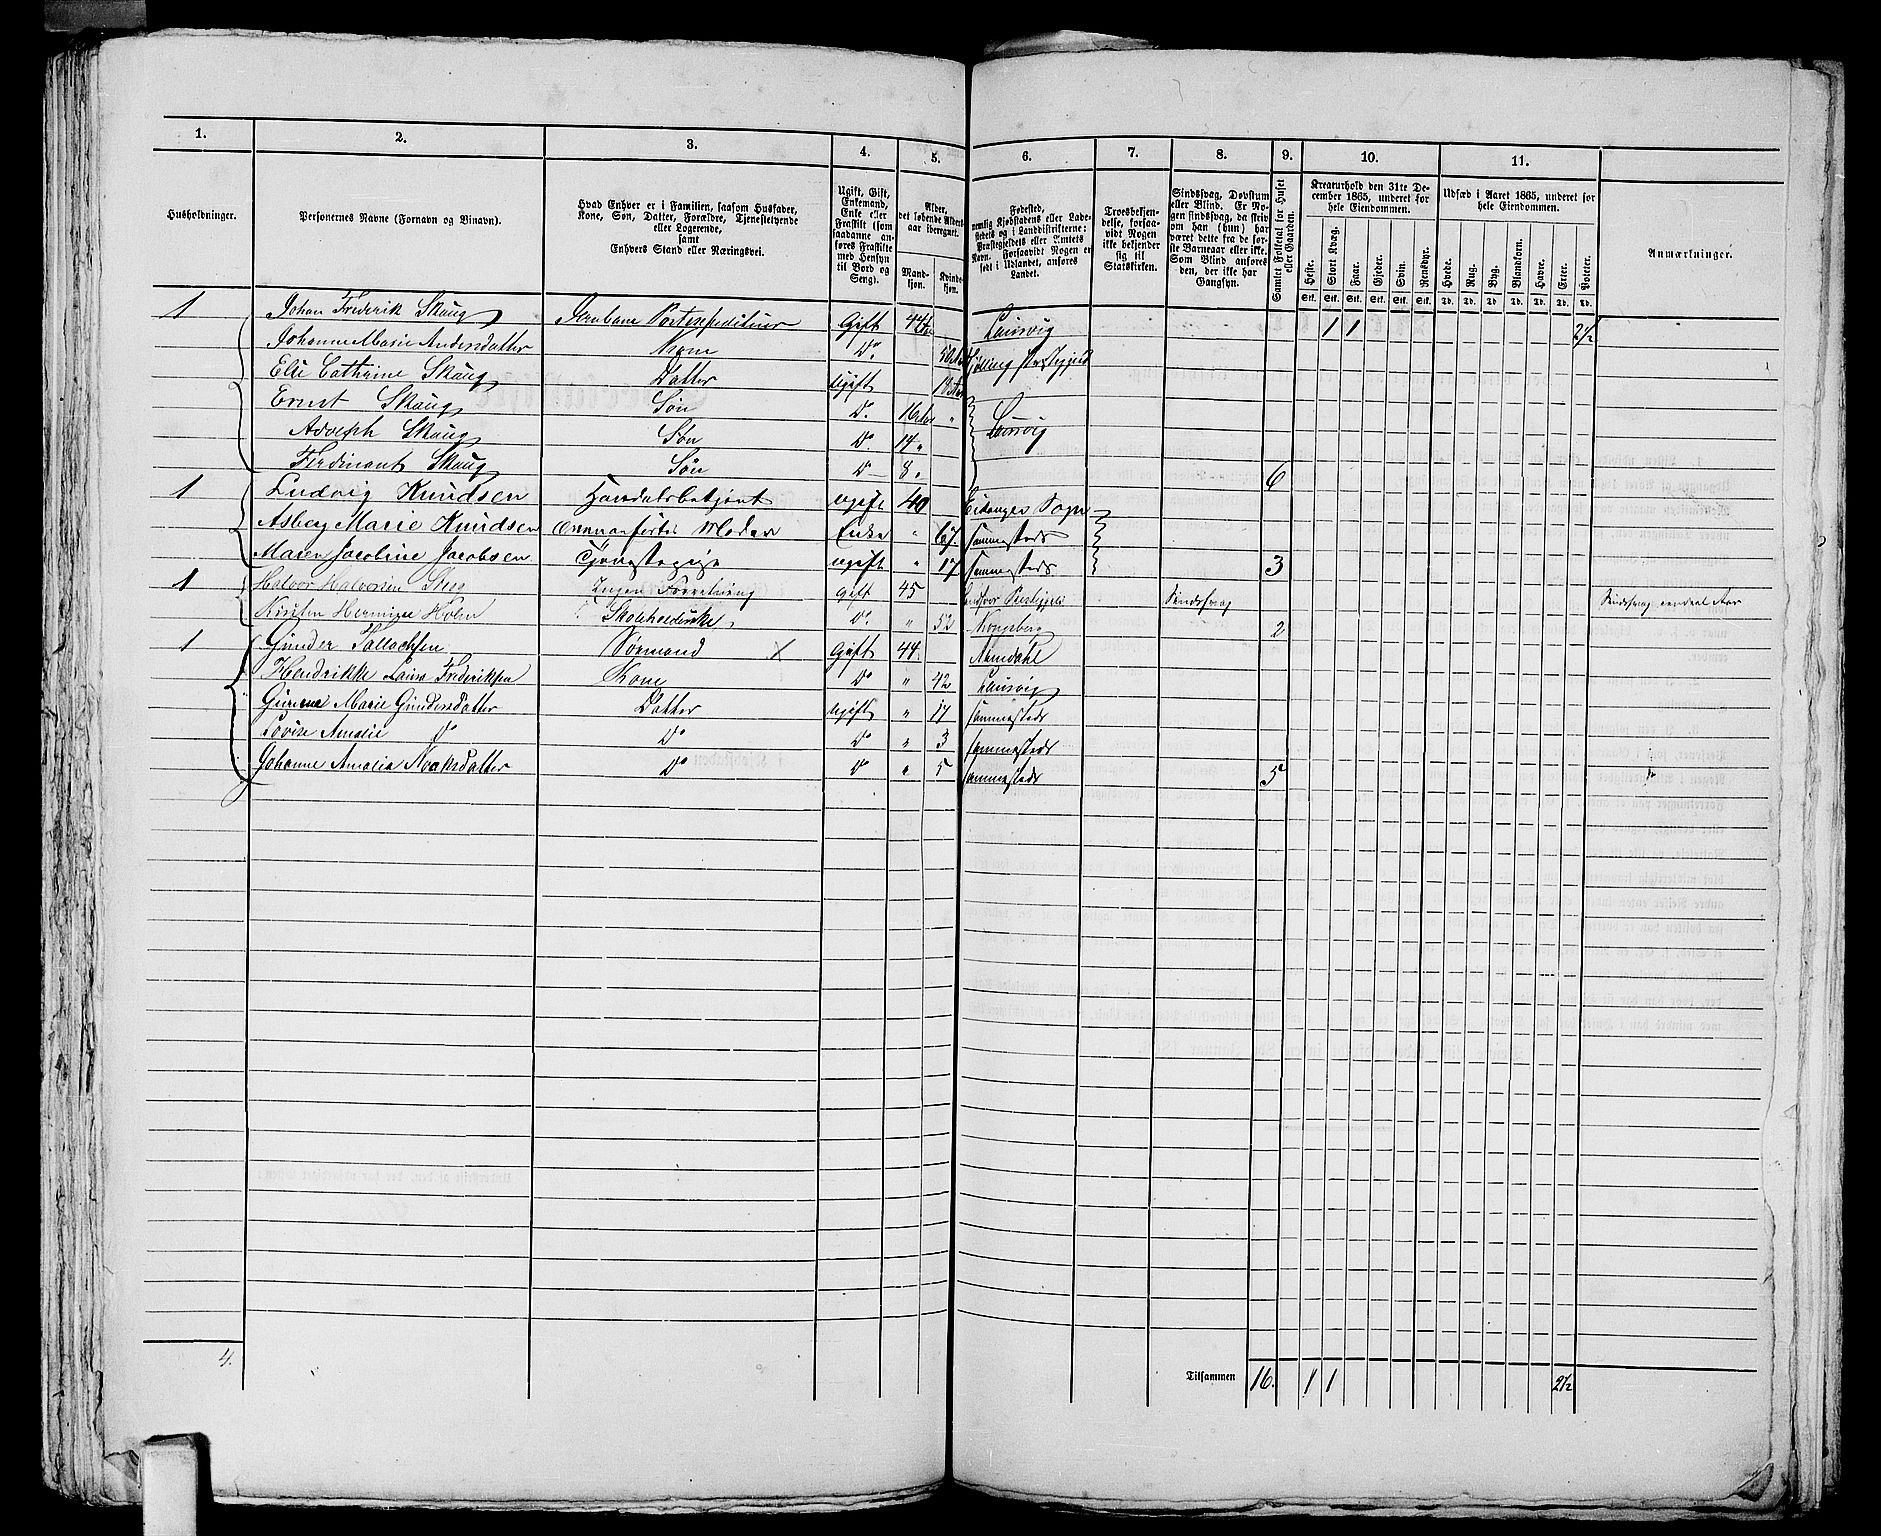 1. 2. 3. 4. 5. 6. 7. 8. 9. 10. 11.
Husholdninger.
Personernes Navne (Fornavn og Binavn).
Hvad Enhver er i Familien, saasom Husfader, Kone, Søn, Datter, Forældre, Tjenestetyende eller Logerende, samt Enhvers Stand eller Næringsvei.
Ugift, Gift, Enkemand, Enke eller Fraskilt (som saadanne anføres Fraskilte med Hensyn til Bord og Seng).
Alder, det løbende Alders-aar iberegnet.
Mand-kjøn. Kvinde-kjøn.
Fødested, nemlig Kjøbstadens eller Ladestedets og i Landdistrikterne: Præstegjeldets eller Amtets Navn. Forsaavidt Nogen er født i Udlandet, anføres Landet.
Troesbekjendelse, forsaavidt Nogen ikke bekjender sig til Statskirken.
Sindssvag, Døvstum eller Blind. Er Nogen sindssvag, da skriv om han (hun) har været dette fra de første Barneaar eller ikke. Som Blind anføres den, der ikke har Gangsyn.
Samlet Folketal for Huset eller Gaarden.
Kreaturhold den 31te December 1865, underet for hele Eiendommen.
Heste. Stort Kvæg. Faar. Gjeder. Svin. Rensdyr.
Stk. Stk. Stk. Stk. Stk. Stk.
Udsæd i Aaret 1865, underet for hele Eiendommen.
Hvede. Rug. Byg. Blandkorn. Havre. Erter. Poteter.
Td. Td. Td. Td. Td. Td. Td.
Anmærkninger.
1 Johan Frederik Skaug Gift 44 Laurvig 1 1 2 1/2
Johanne Marie Andersdatter Kone Do.
Elie Cathrine Skaug Datter Ugift
Ernst Skaug Søn Do. 16 " Laurvig
Adolph Skaug Søn Do 14 "
Ferdinant Skaug Søn Do 8 " 6
1 Ludvig Knudsen Handelsbetjent Ugift 40 Eidanger Sogn
Asberg Marie Knudsen Moder Enke " 67. sammesteds
Maren Jacobine Jacobsen Tjenestepige ugift " 17 sammesteds 3
1 Halvor Halvorsen Ingen Forretning gift 45 Sindssvag
Kirsten Holm Do. " 52 Kongsberg 2
1 Gunder Tallachsen Sømand X Gift 44 Arendahl
Hendrikke Laura Frederiksen Kone Do " 42 Laurvig
Gurine Marie Gundersdatter Datter Ugift " 17 sammesteds
Lovise Amalie Do Do Do " 3 sammesteds
Johanne Amalia Do Do " 5 sammesteds 5
4. Tilsammen 16. 1 1 2 1/2